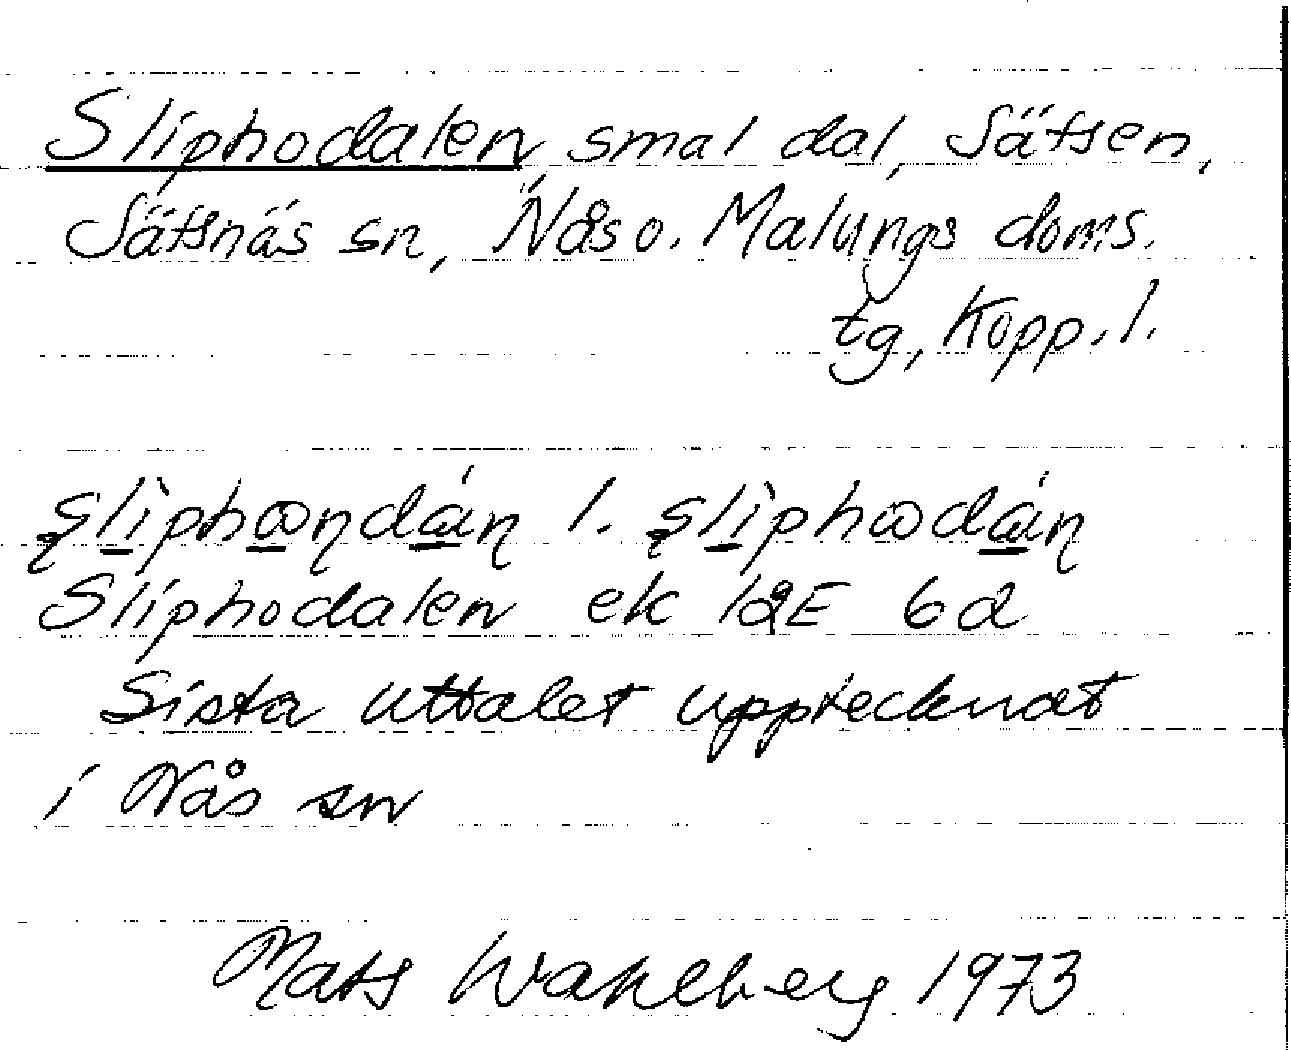 Sliphodalen, smal dal, Sätsen,
Sätsnäs sn, Nås o. Malungs doms.
tg, Kopp. l.
l.
Sliphodalen ek 12E 6d
Sista uttalet upptecknat
i Nås sn
Mats Wahlberg 1973